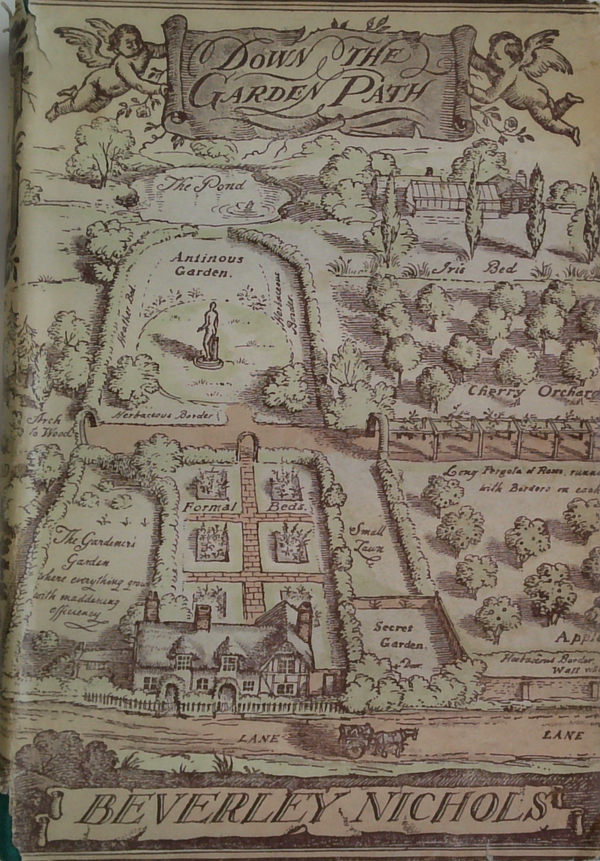 Down The
Garden Path
The Pond
Iris Bed
Antinous
Garden.
Heather Bed.
Herbaceous
Border
Cherry Orchar
Herbaceous Border
Arch
to Wood
Long Pergola of Roses, runn
with Borders on each
Formal Beds.
Small
Lawn
The Gardener's
Garden
where everything grow
with maddening
efficiency
Secret
Garden.
Door.
Apple
Herbaceous Border,
Wall
LANE
LANE
BEVERLEY NICHOLS